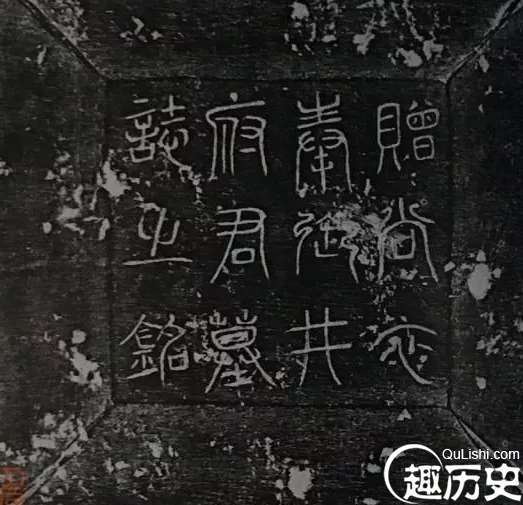 贈尚衣
奉御井
府君墓
誌之銘
QuLishi.com
趣历史